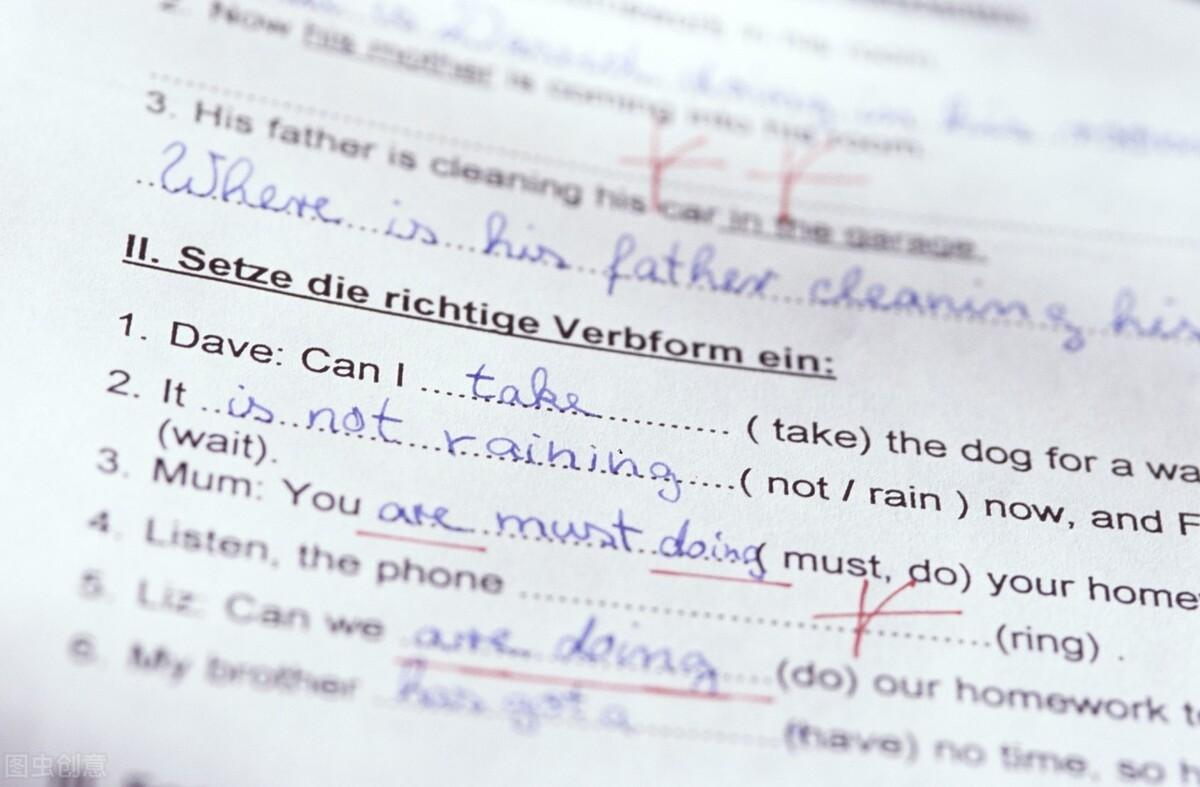 2. Now his mother is coming into his room.
3. His father is cleaning his car in the garage.
..Where...is...his..father...cleaning..his
II. Setze die richtige Verbform ein:
1. Dave: Can I ....take............... ( take) the dog for a wa
2. It ..is..not...raining.....( not / rain ) now, and F
(wait).
3. Mum: You are..must..doing( must, do) your home
4. Listen, the phone ........................................(ring) .
5. Liz: Can we are..doing....(do) our homework t
6. My brother has got a............(have) no time, so h
图虫创意